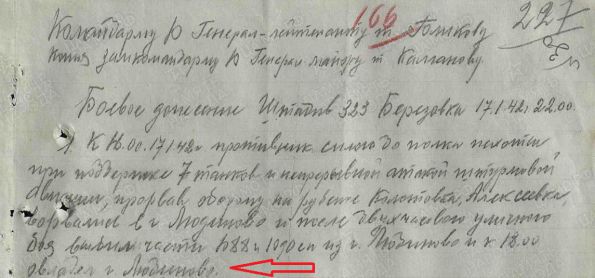 166
227
Командарму 10 Генерал-лейтенанту т. Голикову
копия замкомандарму 10 Генерал майору т. Колганову.
Боевое донесение Штадив 323 Березовка 17.1.42, 22.00.
1. К 16.00. 17.1.42г противник силою до полка пехоты
при поддержке 7 танков и непрерывной атакой штурмовой
авиации, прорвав оборону на рубеже Колотовка, Алексеевка,
ворвались в г Людиново и после двухчасового уличного
боя части 1088 и 1090 сп из г. Людиново и к 18.00
овладел г Людиново.